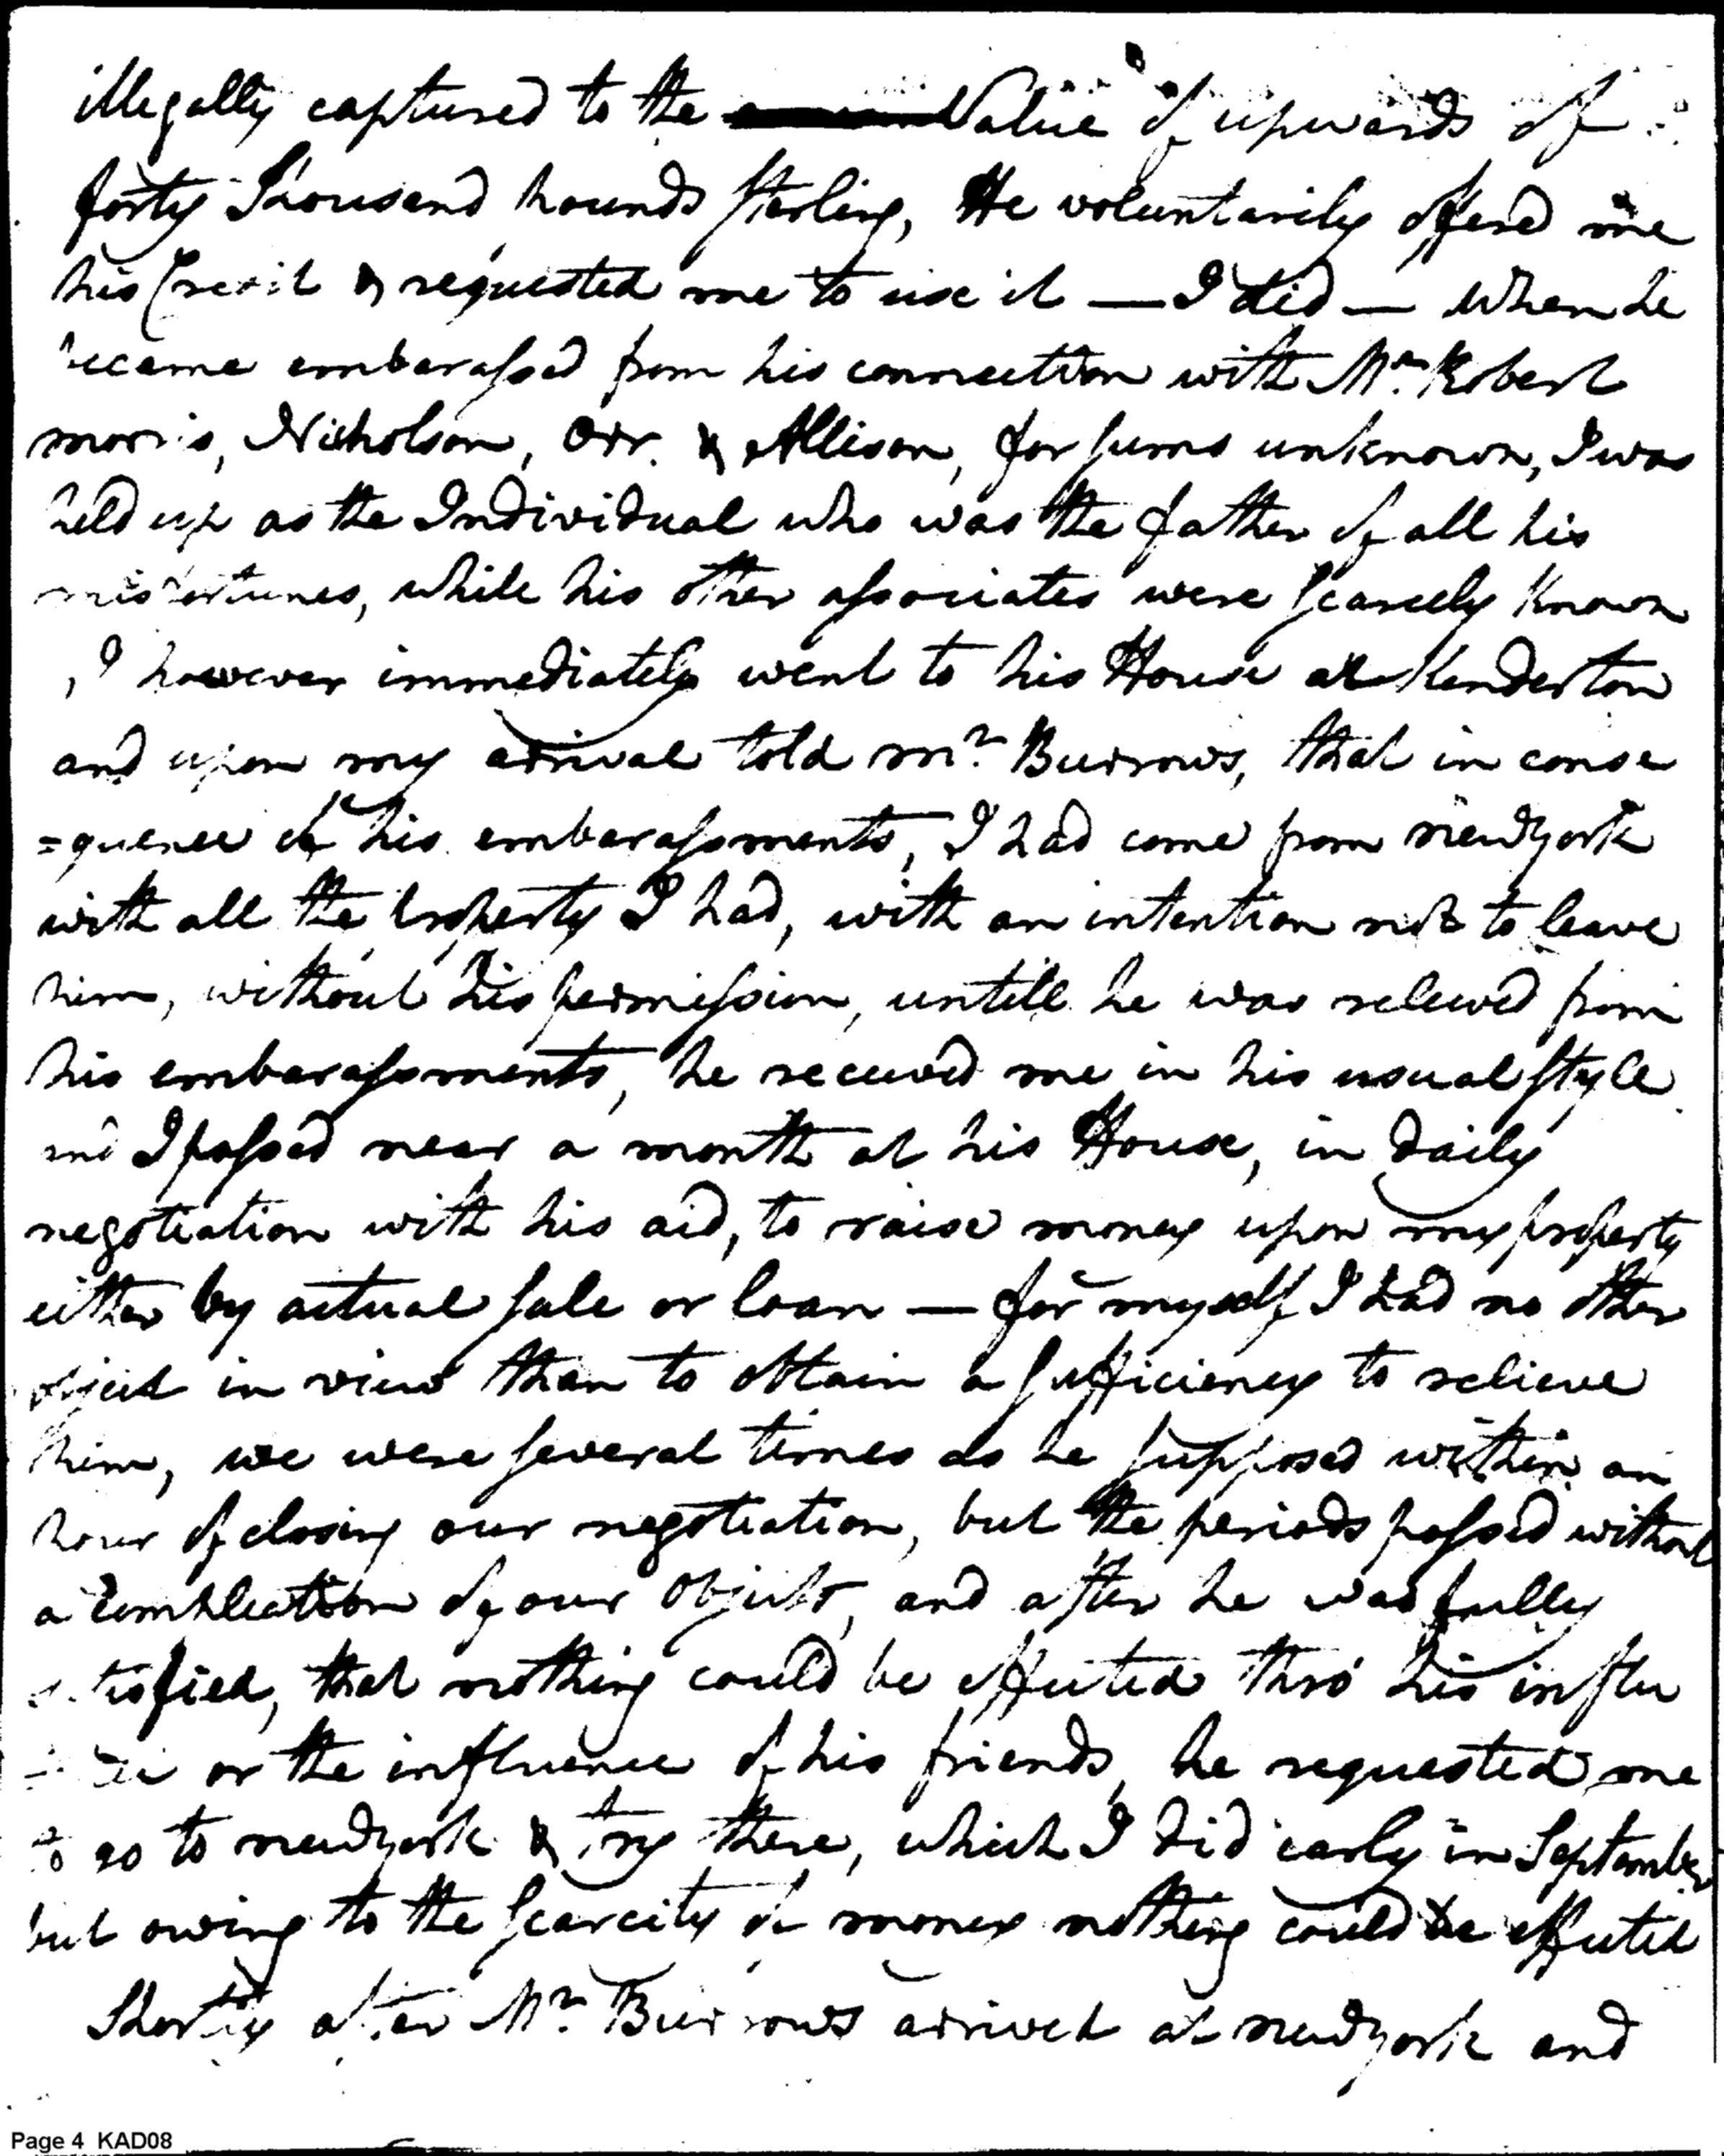 illegally captured to the Value of upwards of
forty Thousand pounds Sterling, He voluntarily offered me
his Credit & requested me to use it — I did — When he
became embarassed from his connecttion with Mr. Robert
morris, Nicholson, Orr. & Allison, for sums unknown, I was
held up as the Individual who was the father of all his
misfortunes, while his other associates were scarcely known
, I however immediately went to his House at Kenderton
and upon my arrival told Mr. Burrows, that in conse
=quence of his embarassments, I had come from newyork
with all the property I had, with an intention not to leave
him, without his permission, untill he was releived from
his embarassments, he received me in his usual style
and I passed near a month at his House, in daily
negotiation with his aid, to raise money upon my property
either by actual sale or loan — for myself I had no other
object in view than to obtain a sufficiency to relieve
him, we were several times as he supposed within an
hour of closing our negotiation, but the periods passed without
a Complection of our Objects, and after he was fully
satisfied, that nothing could be effected thro' his influ
=ence or the influence of his friends, he requested me
to go to newyork & try there, which I did early in September
but owing to the scarcity of money nothing could be effected
Shortly after Mr. Burrows arrived at newyork and
Page 4 KAD08